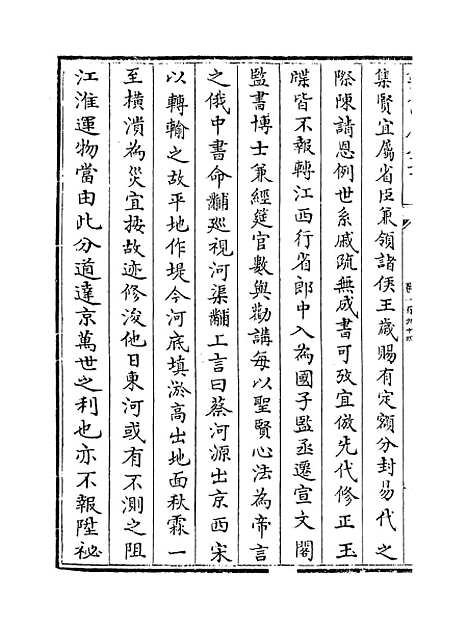 集賢宜屬省臣兼領諸侯王歲賜有定額分封易代之
際陳請恩例世系戚疏無成書可攷宜倣先代修正玉
牒皆不報轉江西行省郎中入為國子監丞選宣文閣
監書博士兼經筵官數與勸講每以聖賢心法為帝言
之俄中書命黼廵視河渠黼上言曰蔡河源出京西宋
以轉輸之故平地作堤今河底填淤高出地面秋霖一
至橫潰為災宜按故迹修浚他日東河或有不測之阻
江淮運物當由此分道達京萬世之利也亦不報陞祕